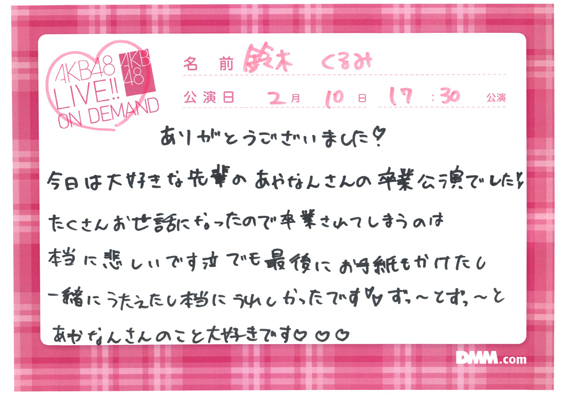 AKB48
LIVE!!
ON DEMAND
AKB
48
名 前 鈴木 くるみ
公演日 2月 10日 17:30 公演
ありがとうございました♡
今日は大好きな先輩のあやなんさんの卒業公演でした!
たくさんお世話になったので卒業されてしまうのは
本当に悲しいです泣 でも最後にお手紙もかけたし
一緒にうたえたし本当にうれしかったです♡♡ ずっ〜とずっ〜と
あやなんさんのこと大好きです♡♡♡
DMM.com